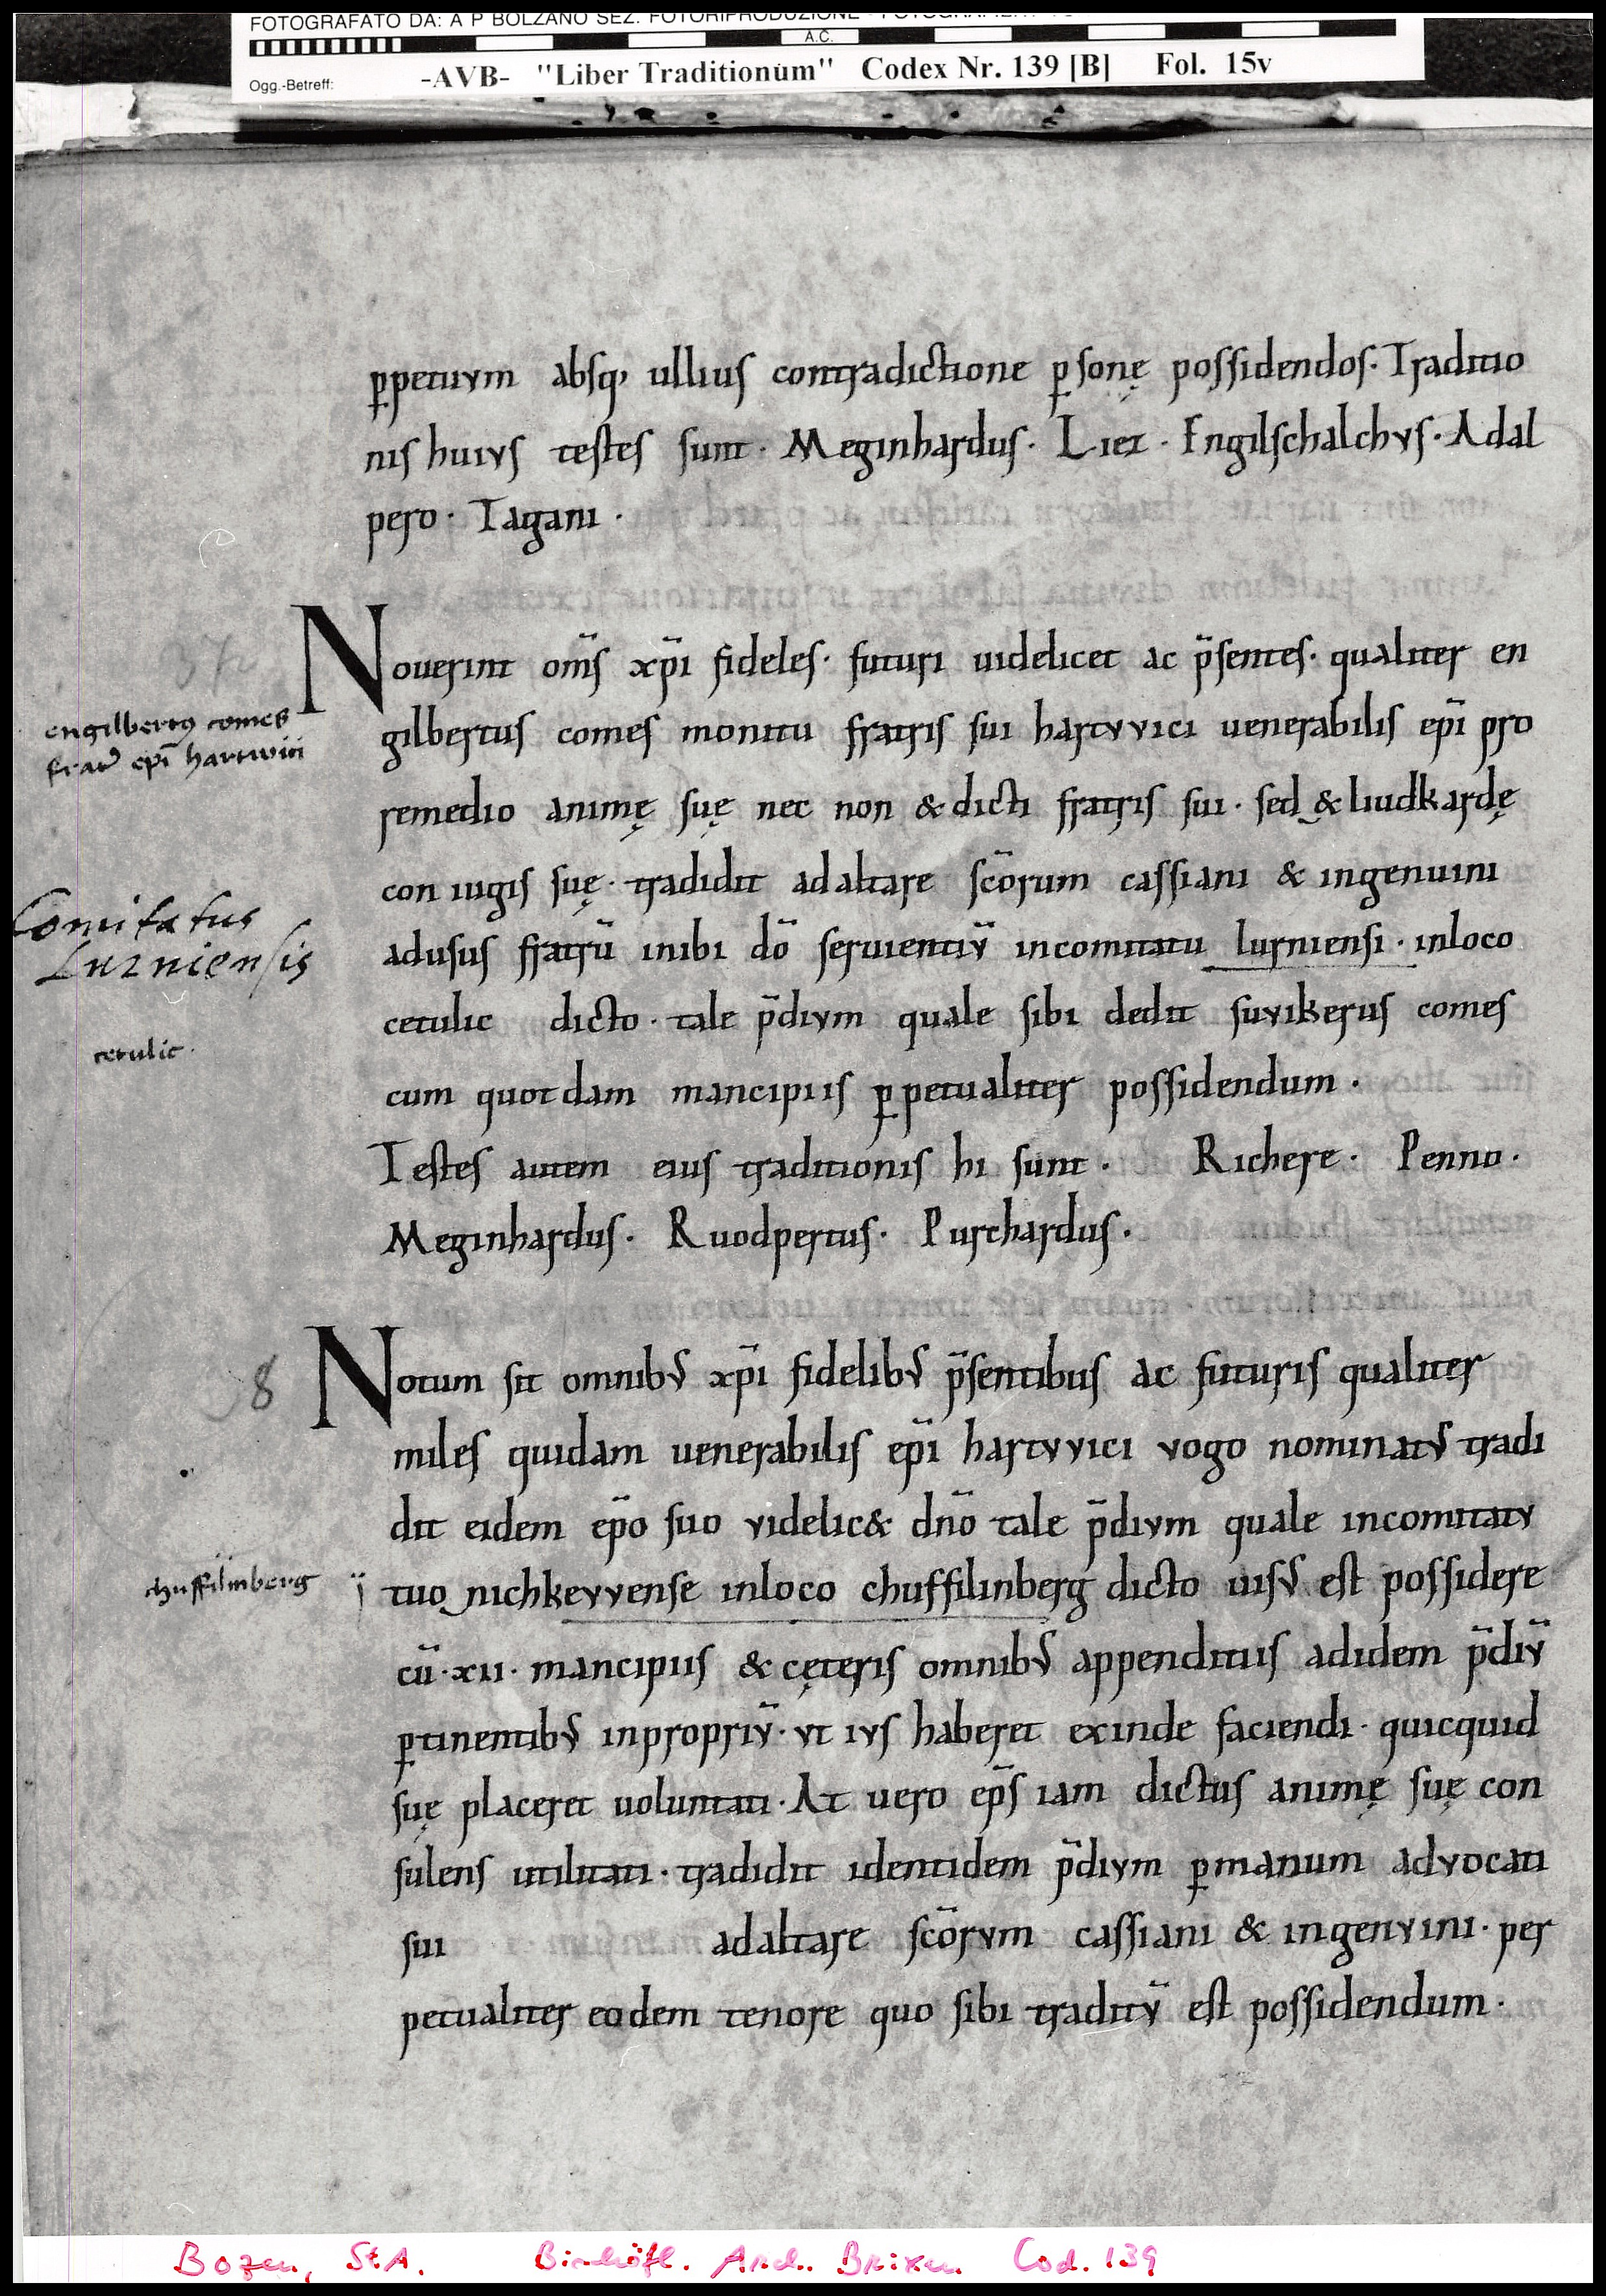 FOTOGRAFATO DA: A P BOLZANO SEZ. FOTORIPRODUZIONE
A.C.
Ogg.-Betreff: -AVB- "Liber Traditionum" Codex Nr. 139 [B] Fol. 15v
p̱petuvm absq; ullius contradictione p̱sonę possidendos· Traditio
nis huivs testes sunt· Meginhardus· Liez· Engilschalchvs· Adal
pero· Tagani·
37
Nouerint om̅s xp̅i fideles· futuri uidelicet ac p̅sentes· qualiter en
engilbertꝰ comes
frat̓ ep̅i hartwici
gilbertus comes monitu fratris sui hartvvici uenerabilis ep̅i pro
remedio animę suę nec non & dicti fratris sui· sed & liudkardę
con iugis suę· tradidit ad altare sc̅orum cassiani & ingenuini
Comitatus
Lurniensis
adusus fratru̅ inibi do̅ seruientiv̅ incomitatu lurniensi· inloco
cetulic dicto· tale p̅divm quale sibi dedit suvikerus comes
cetulic·
cum quotdam mancipiis p̱petualiter possidendum·
Testes autem eius traditionis hi sunt· Richere· Penno·
Meginhardus· Ruodpertus· Purchardus·
8
Notum sit omnibꝰ xp̅i fidelibꝰ p̅sentibus ac futuris qualiter
miles quidam uenerabilis ep̅i hartvvici vogo nominatꝰ tradi
dit eidem ep̅o suo videlic& dn̅o tale p̅divm quale incomitatv
chuffilinberg
tuo nichkevvense inloco chuffilinberg dicto uisꝰ est possidere
cu̅·xii· mancipiis & cęteris omnibꝰ appendituis adidem p̅div̅
p̱tinentibꝰ inpropriv̅· vt ivs haberet exinde faciendi· quicquid
suę placeret uoluntati· At uero ep̅s iam dictus animę suę con
sulens utilitati· tradidit identidem p̅divm p̱manum advocati
sui adaltare sc̅orvm cassiani & ingenvini· per
petualiter eodem tenore quo sibi traditv̅ est possidendum·
Bozen, St.A. Bischöfl. Arch. Brixen Cod. 139